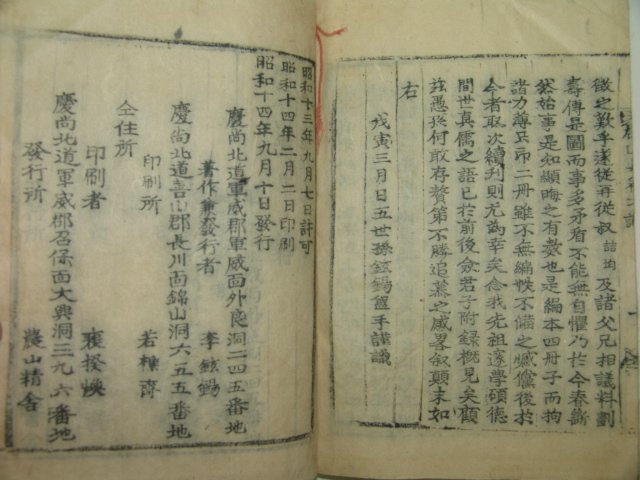 徵之難乎遂從再從叔諮均及諸父兄相議料劃
壽傳是圖而事多矛盾不能無自懼乃於今春斷
然始事是如顯晦之有數也是編本四冊子而拘
諸力尊只印二冊雖不無編帙不備之憾儻後於
今者取次續刊則尤為幸矣念我先祖邃學碩德
間世眞儒之語已於前後僉君子附錄槪見矣顧
玆愚孫何敢存贅第不勝追慕之感畧叙顚末如
右
戊寅三月日五世孫鉉錫盥手謹識
昭和十三年九月七日許可
昭和十四年九月二日印刷
昭和十四年九月十日發行
慶尚北道軍威郡軍威面外良洞二四五番地
著作兼發行者 李鉉錫
慶尚北道善山郡長川面錦山洞六五五番地
印刷所 若榛齋
仝住所
印刷者
慶尚北道軍威郡召保面大興洞三九六番地
發行所 農山精舍